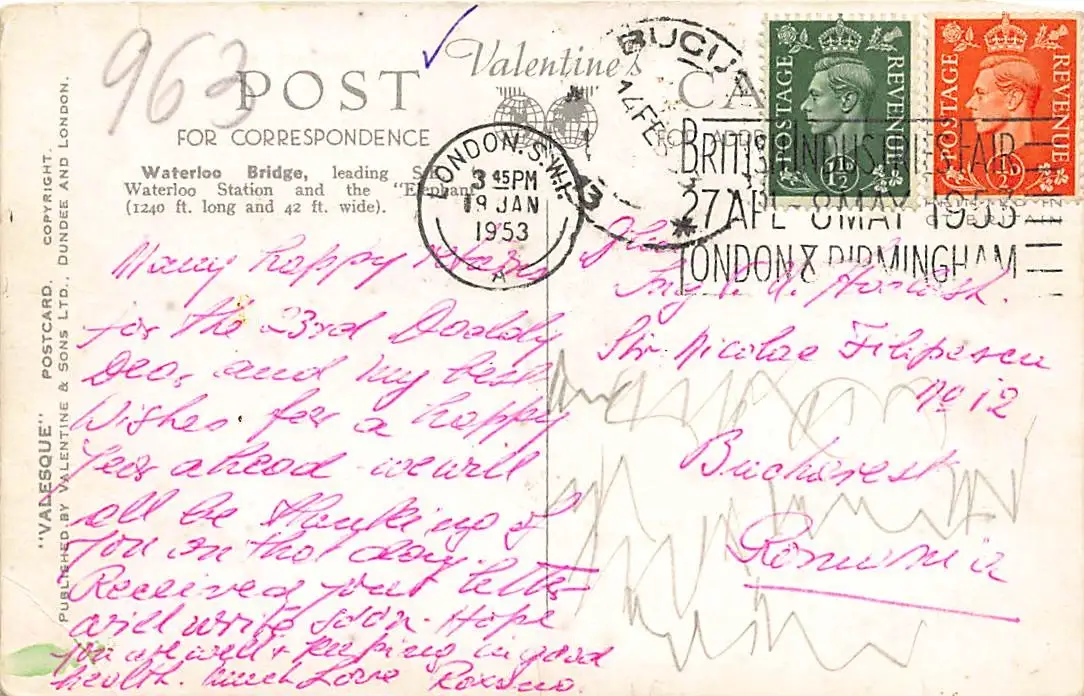 963
POST CA
Valentine's
FOR CORRESPONDENCE
Waterloo Bridge, leading
Waterloo Station and the "Elephant
(1240 ft. long and 42 ft. wide).
"VADESQUE" POSTCARD. COPYRIGHT.
PUBLISHED BY VALENTINE & SONS LTD., DUNDEE AND LONDON.
LONDON. S.W.1
3 45PM
19 JAN
1953
A
14 FE
POSTAGE REVENUE
1½D
POSTAGE REVENUE
BRITISH INDUSTRIES FAIR
27 APL 8 MAY 1953
LONDON & BIRMINGHAM
Many happy
for the 23rd Daddy
Dear and my best
Wishes for a happy
Year ahead we will
all be thanking of
you on that day.
Received your letter
will write soon. Hope
you are well & keeping in good
health. Much Love Roxana.
Str. Nicolae Filipescu
No 12
Bucharest
Romania